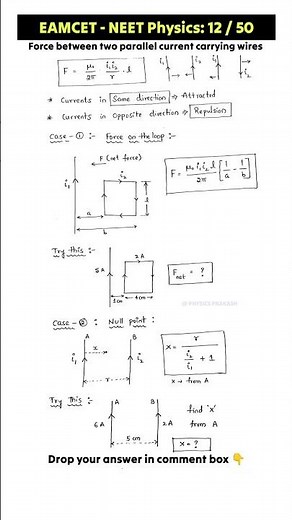 EAMCET - NEET Physics: 12 / 50
Force between two parallel current carrying wires
F = μ₀/2π · i₁i₂/r · l
i₁ i₂ i₁ i₂
* Currents in Same direction ⇒ Attracted
* Currents in Opposite direction ⇒ Repulsion
Case - ① :- Force on the loop :-
F (net force)
i₁ i₂ l
a
b
F = μ₀ i₁ i₂ l / 2π [1/a - 1/b]
Try this :-
5A 2A
1cm 4cm
Fnet = ?
@PHYSICS PRAKASH
Case - ② : Null point :
A B
i₁ x i₂
r
x = r / (i₂/i₁ + 1)
x → from A
Try This :-
A B
6A 2A
5 cm
find 'x'
from A
x = ?
Drop your answer in comment box 👇